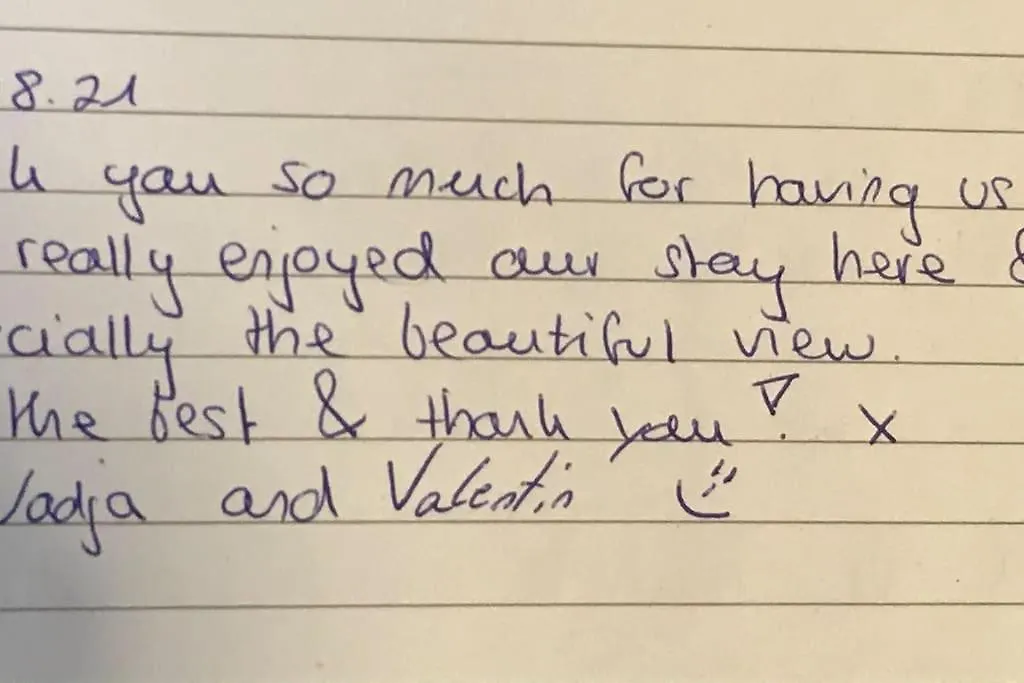 8.21
k you so much for having us
really enjoyed our stay here &
cially the beautiful view.
the best & thank you! x
adja and Valentin